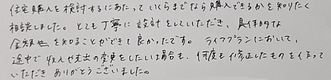 住宅購入を検討するにあたっていくらまでなら購入できるかを知りたく
相談しました。とても丁寧に設計をしていただき、具体的な
金額を知ることができて良かったです。ライフプランにおいて、
途中で収入や支出の変更をしたい場合も、何度も修正したものを作って
いただきありがとうございました。